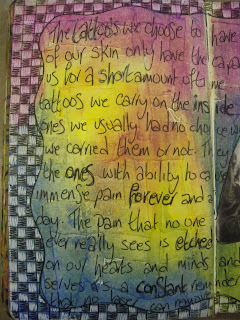 The tattoos we choose to have
of our skin only have the capa
us for a short amount of time
tattoos we carry on the inside
ones we usually had no choice w
we carried them or not. The
the ones with ability to cause
immense pain forever and a
day. The pain that no one
ever really sees is etched
on our hearts and minds and
serves as a constant reminder
that no laser can remove